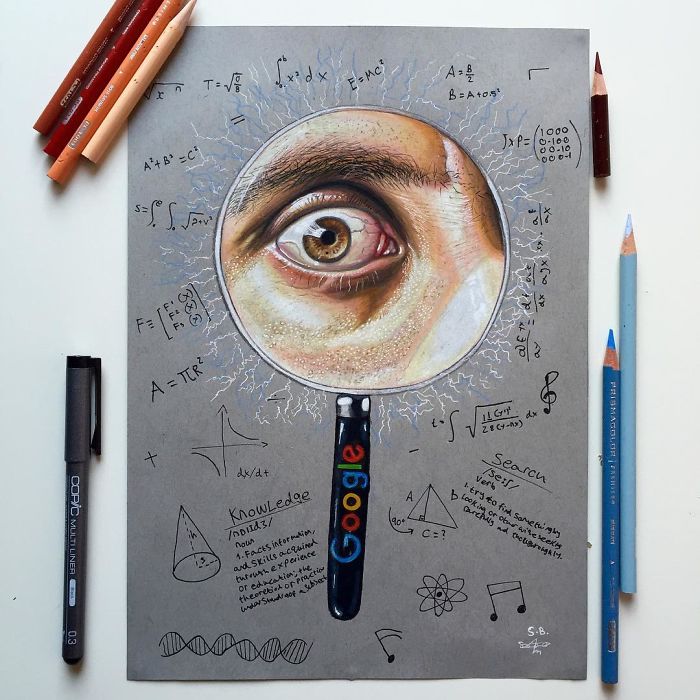 T=√
∫ₐᵇ x² dx
E=MC²
A=B/2
B=A+0.5²
A²+B²=C²
S=∫∫√
JxP=(1000
0-100
00-10
000-1)
F≡[F¹(X)
F²(X)
F₃(X)]
A=πR²
dx/dt
t=∫√ dx
KnowLedge
noun
1. Facts, information,
and skills acquired
through experience
or education; the
theoretical or practical
understanding of a subject
Google
A
B
90°
C=?
Search
/sɜːtʃ/
verb
1. try to find something by
Looking or otherwise seeking
carefully and thoroughly.
h
S.B.
COPIC
MULTILINER
0.3
PRISMACOLOR